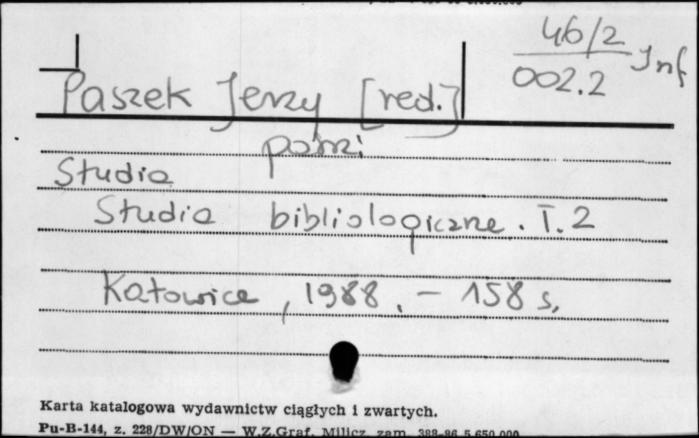 46/2
002.2 Inf
Paszek Jerzy [red.]
patrz:
Studia
Studia bibliologiczne. T. 2
Katowice, 1988. - 158 s.
Karta katalogowa wydawnictw ciągłych i zwartych.
Pu-B-144, z. 228/DW/ON — W.Z.Graf. Milicz zam. 388-86 5.650.000